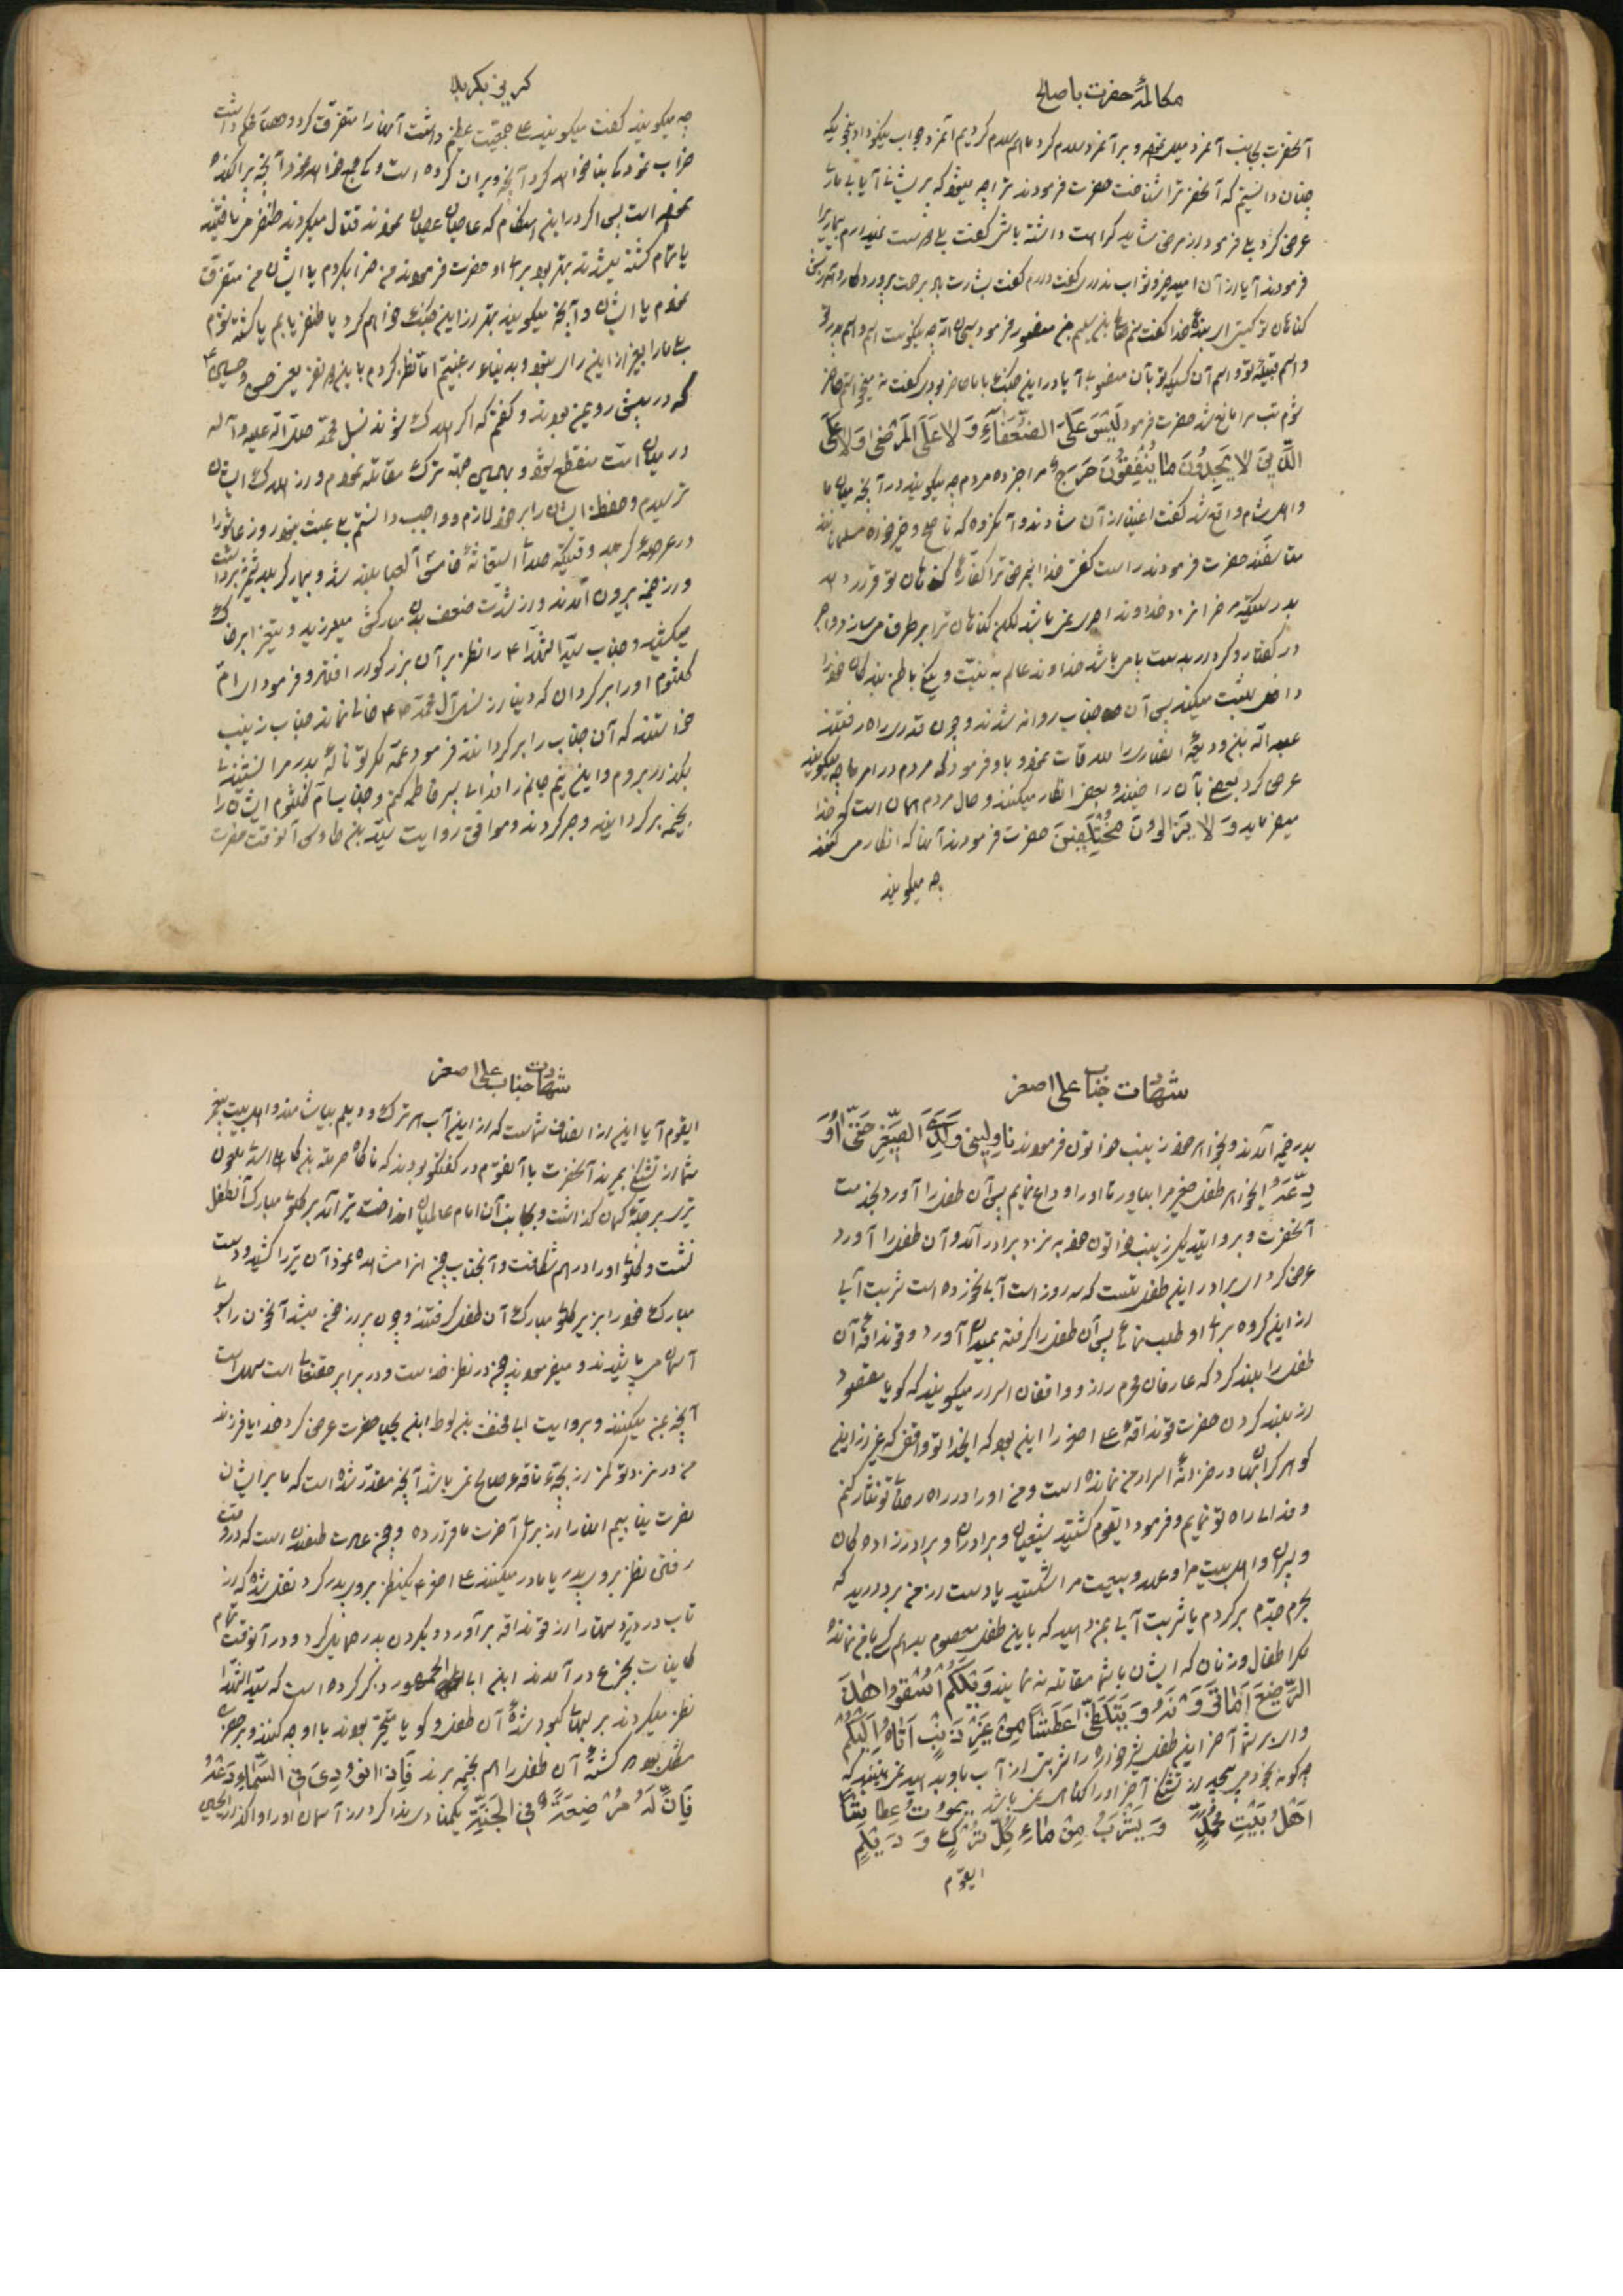 مکالمهٔ حضرت با صالح
آنحضرت بجانب آنمرد میل نمود و بر آنمرد سلام کرد ما هم سلام کردیم آنمرد جواب نیکو داد بنحویکه
چنان دانستیم که آنحضرت را شناخت حضرت فرمودند ترا چه میشود که پریشانی آیا بیماری
عرض کرد بلی فرمود از مرض شاید کراهت داشته باشی گفت
فرمودند آیا از آن امید خیر و ثواب نداری گفت دارم گفت بشارت باد برحمت پروردگار و آمرزش
گناهان تو کیستی ای بنده خدا گفت منم صالح بن سلیم حضرت فرمود سبحان الله چه نیکوست اسم تو و اسم پدر تو
و اسم قبیلهٔ تو و اسم آن کسیکه تو بآن منسوبی آیا در این جنگ با ما حاضر بودی گفت نه میخواستم حاضر
شوم تب مرا مانع شد حضرت فرمود لَیْسَ عَلَی الضُّعَفَآءِ وَ لا عَلَی الْمَرْضی وَ لا عَلَی
الَّذینَ لا یَجِدُونَ ما یُنْفِقُونَ حَرَجٌ مرا خبر ده مردم چه میگویند در آنچه میان ما
و اهل شام واقع شد گفت اغنیا از آن شادند و آنگروه که ناصح و خیرخواه مسلمانانند
متأسفند حضرت فرمودند راست گفتی خدا این مرض ترا کفارهٔ گناهان تو قرار دهد
بدرستیکه مرض را نزد خداوند اجری نمی باشد لکن گناهان ترا بر طرف می سازد و اجر
در گفتار و کردار بدست و پا می باشد خداوند عالم به نیّت و نیکی باطن بندگان خود را
داخل بهشت میکند پس آن جناب روانه شدند و چون قدری راه رفتند
عبدالله بن ودیعهٔ انصاری را ملاقات نمود و باو فرمود که مردم در امر ما چه میگویند
عرض کرد بعضی بآن راضیند و بعضی انکار میکنند و حال مردم همان است که خدا
میفرماید وَ لا یَزالُونَ مُخْتَلِفینَ حضرت فرمودند آنها که انکار می کنند
چه میگویند
گریز بکربلا
چه میگویند گفت میگویند علی جمعیّت عظیم داشت آنها را متفرّق کرد و حصنی محکم داشت
خراب نمود کی بنا خواهد کرد آنچه ویران کرده است و کی جمع خواهد نمود آنچه پراکنده
نموده است پس اگر در این هنگام که عاصیان عصیان نمودند قتال میکردند ظفر می یافتند
یا تمام کشته میشدند بهتر بود برای او حضرت فرمودند من خراب کردم یا ایشان من متفرّق
نمودم یا ایشان و آنچه میگویند بهتر از این جنگ خواهم کرد یا ظفر یابم یا کشته شوم
که در پیش روی من بودند و گفتم که اگر هلاک شوند نسل محمّد صلی الله علیه و آله
در میان امّت منقطع شود و باین جهة ترک مقاتله نمودم و از هلاک ایشان
ترسیدم و حفظ ایشان را بر خود لازم و واجب دانستم
در عرصهٔ کربلا وقتیکه صدای استغاثهٔ خامس آل عبا بلند شد و بیمار کربلا
و از خیمه بیرون آمدند و از شدّت ضعف بدن مبارکش میلرزید و نیزه را بر خاک
میکشید و جناب سیّد الشهدا ع را نظر بر آن بزرگوار افتاد و فرمود ای امّ
کلثوم او را برگردان که دنیا از نسل آل محمّد ص خالی نماند جناب زینب
خواستند که آن جناب را برگردانند فرمود عمّه مگر تو نالهٔ پدر مرا نشنیدی
بگذار بروم و این نیم جانم را فدای پسر فاطمه کنم و جناب ام کلثوم ایشان را
بخیمه برگردانید و موافق روایت سیّد بن طاوس آنوقت حضرت
شهادت جناب علی اصغر
بدر خیمه آمدند و بخواهر خود زینب خاتون فرمودند ناوِلینی وَلَدِیَ الصَّغیرَ حَتّی اُوَ
دِّعَهُ ایخواهر طفل صغیر مرا بیاور تا او را وداع نمایم پس آن طفل را آورد بخدمت
آنحضرت و بروایت دیگر زینب خاتون خود به نزد برادر آمد و آن طفل را آورد
عرض کرد ای برادر این طفل تست که سه روز است آب نخورده است شربت آبی
از این گروه برای او طلب نمای پس آن طفل را گرفته بمیدان آورد و قنداقهٔ آن
طفل را بلند کرد که عارفان محرم راز و واقفان اسرار میگویند که گویا مقصود
از بلند کردن حضرت قنداقهٔ علی اصغر را این بود که ایخدا تو واقفی که غیر از این
گوهر گرانبها در خزانهٔ اسرار من نمانده است و من او را در راه رضای تو نثار کنم
و فدای راه تو نمایم و فرمود ایقوم کشتید شیعیان و برادران و برادرزاده گان
و پسران و اهلبیت مرا و عهد و بیعت مرا شکستید یا دست از من بردارید که
بحرم جدّم برگردم یا شربت آبی بمن دهید که باین طفل معصوم بدهم کسی باقی نمانده
مگر اطفال و زنان که ایشان با شما مقاتله نه نمایند وَیْلَکُمْ اُسْقُوا هذَا
الرَّضیعَ اَما تَرَوْنَهُ یَتَلَظّی عَطَشًا مِنْ غَیْرِ ذَنْبٍ اَتاهُ اِلَیْکُمْ
وای بر شما آخر این طفل شیرخواره را شربتی از آب باو بدهید نمی بینید که
چگونه بخود می پیچد از تشنگی آخر او را گناهی نمی باشد یَمُوتُ عِطاشًا
اَهْلُ بَیْتِ مُحَمَّدٍ وَ یَشْرَبُ مِنْ ماءٍ کُلُّ تُرْکٍ وَ دَیْلَمٍ
ایقوم
شهادت جناب علی اصغر
ایقوم آیا این از انصاف شماست که از این آب اهل ترک و دیلم بیاشامند و اهلبیت پیغمبر
شما از تشنگی بمیرند آنحضرت با آنقوم در گفتگو بودند که ناگاه حرملة بن کاهل اسدی ملعون
تیری بر چلّهٔ کمان گذاشت و بجانب آن امام عالمیان انداخت تیر آمد بر گلوی مبارک آنطفل
نشست و گلوی او را درهم شکافت و آنجناب چون این را مشاهده نمود آن تیر را کشید و دست
مبارک خود را بزیر گلوی مبارک آن طفل گرفتند و چون پر از خون میشد آنخون را بسوی
آسمان می پاشیدند و میفرمودند چون در نظر خداست و در برابر حقتعالی است سهل است
آنچه بمن میکنند و بروایت ابی مخنف بن لوط ابن یحیی حضرت عرض کرد خدایا فرزند
من در نزد تو کمتر از بچّهٔ ناقهٔ صالح نمی باشد آنچه مقدّر شده است که ما بر ایشان
نصرت نیابیم این را از برای آخرت ما قرار ده و چون عادت طفلان است که در وقت
رفتن نظر بروی پدر یا مادر میکنند علی اصغر ع یکنظر بروی پدر کرد نقل شده که از
تاب درد تیر دستها را از قنداقه برآورد و بگردن پدر حمایل کرد و در آنوقت تمام
کاینات بجزع درآمدند ابن ابی جمهور ذکر کرده است که سیّد الشهدا
نظر میکردند بر لبهای کبود شدهٔ آن طفل و گویا متحیّر بودند با او چه کنند و بر حضرت
مشکل بود کشتهٔ آن طفل را هم بخیمه برند فَاِذا نُودِیَ فِی السَّماءِ دَعْهُ
فَاِنَّ لَهُ مُرْضِعَةً فِی الْجَنَّةِ یکمنادی ندا کرد از آسمان او را واگذار ایحسین